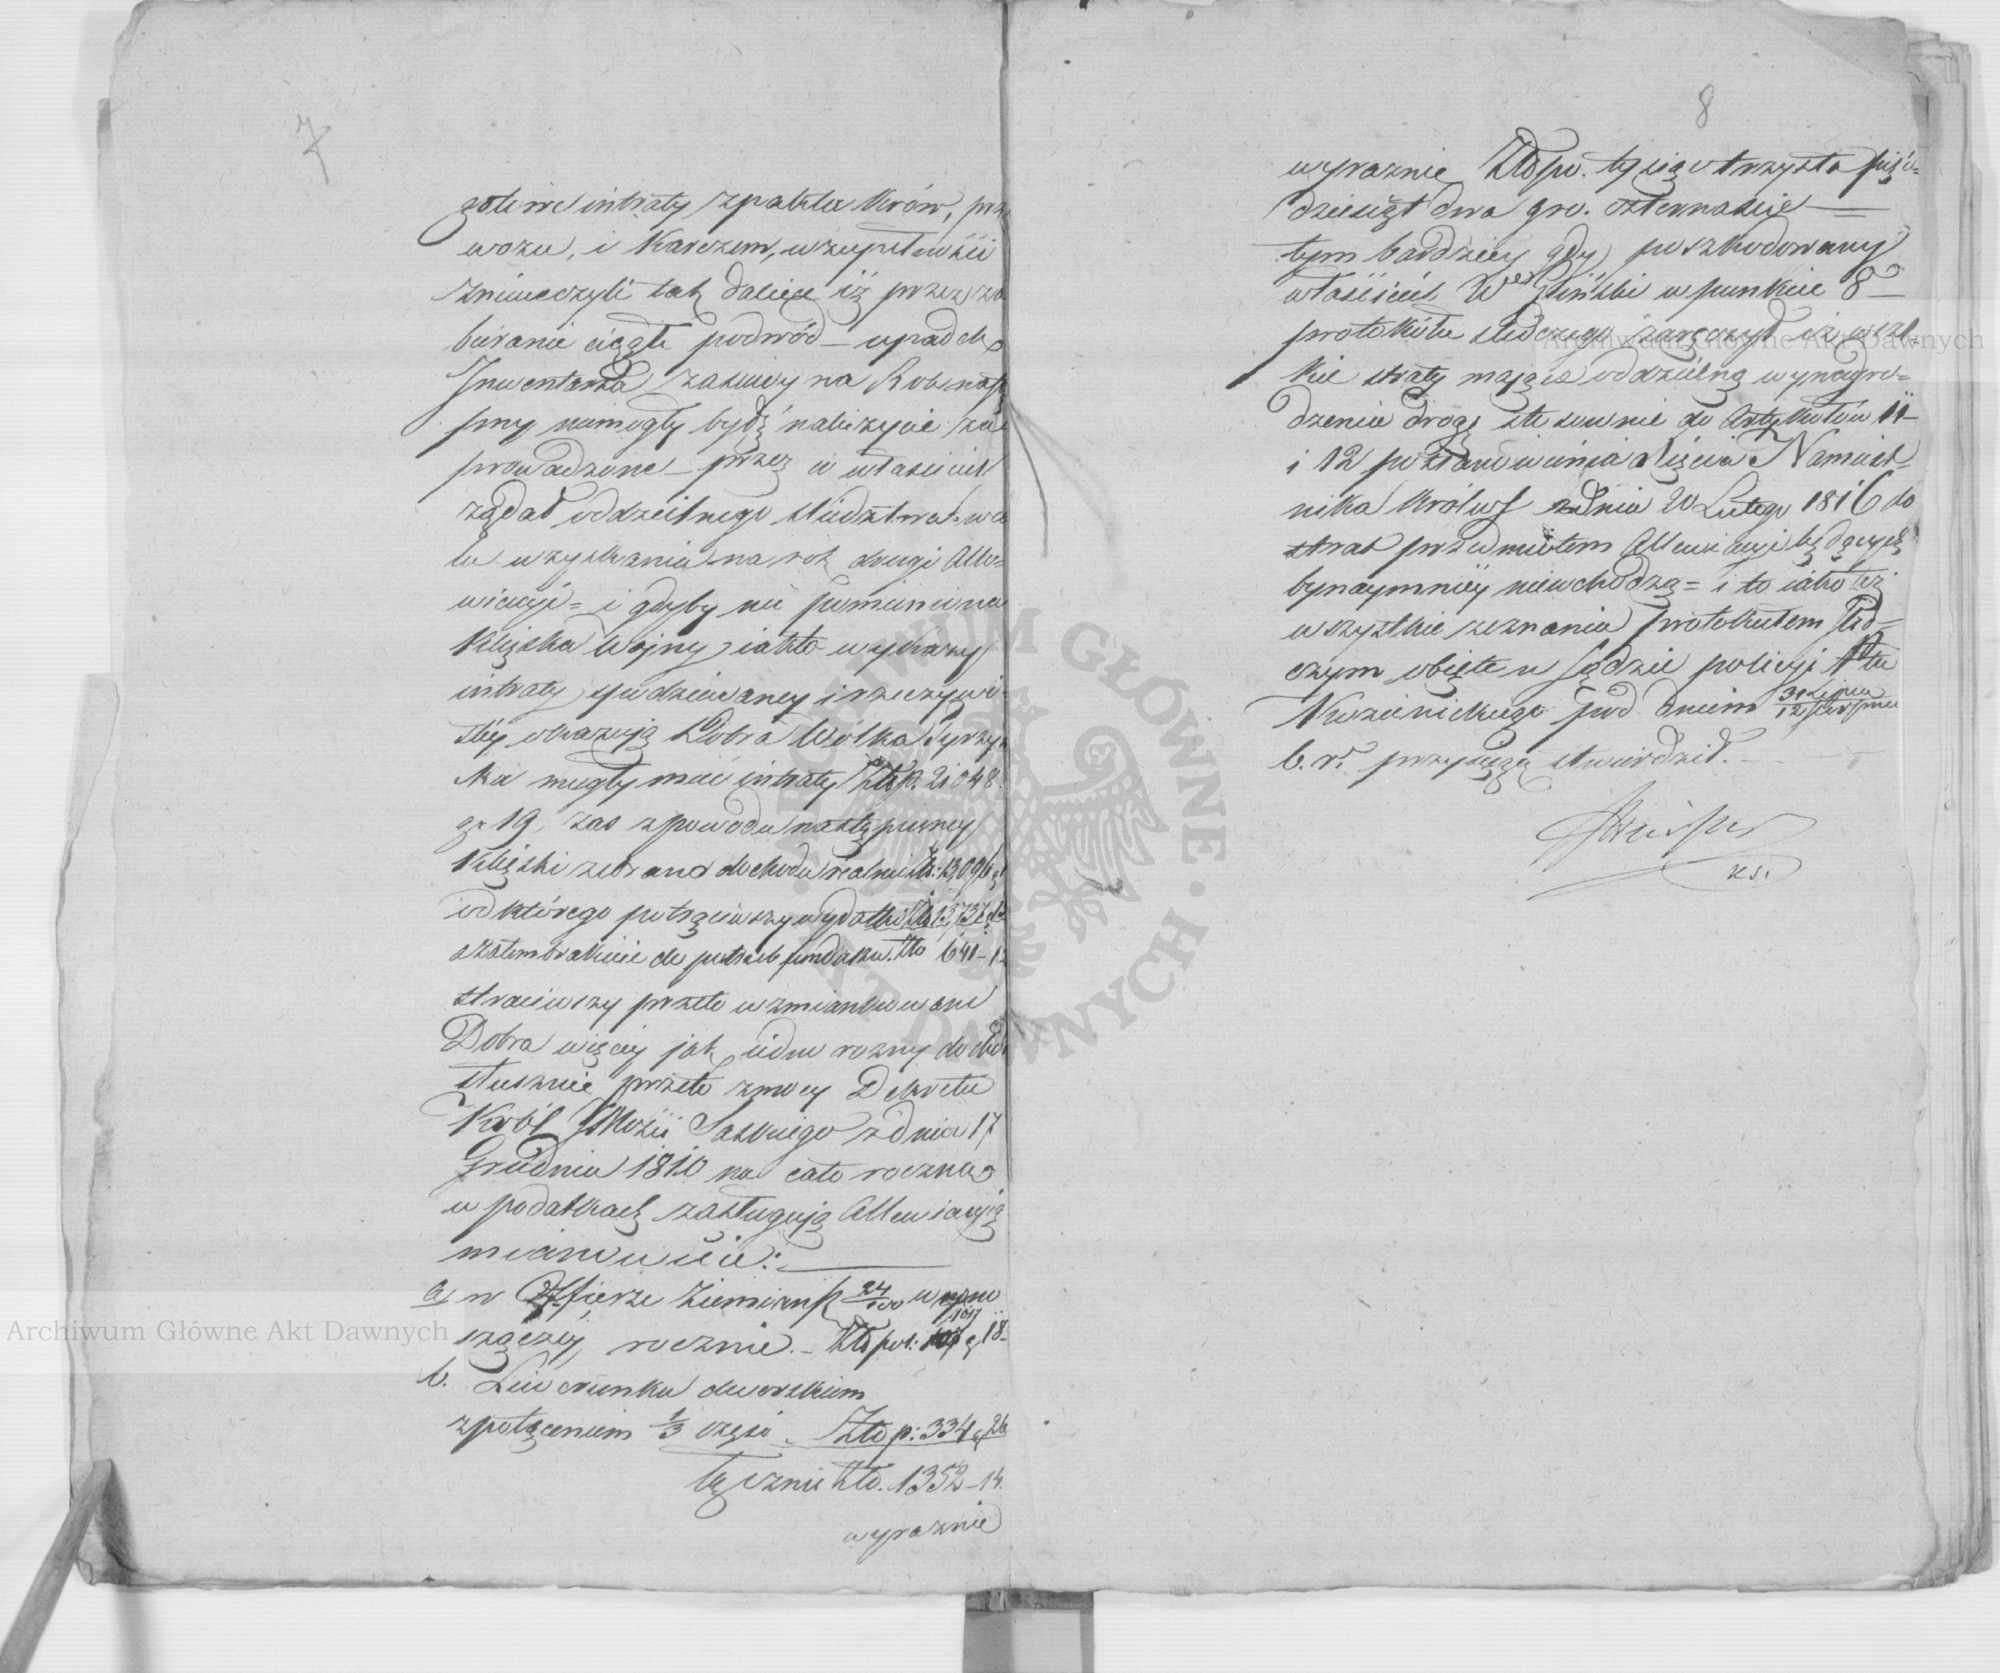 7
gotowe intraty z paktu Krów, prze
wozu, i Karczem, w zupełności
zniweczyli tak daléce iż przez za
bieranie ciągłe podwód – upadek
Inwentarza zasiewy na Rok nastę
pny niemogły bydź należycie za
prowadzone – przez właściciel
żądał oddzielnego śledztwa w ce
lu uzyskania na rok drugi Alle=
wiacyi = i gdyby nie pomieniona
Klęska Wojny, jak to wykazy
intraty spodziewaney i rzeczywi
stéy okazują Dobra Wólka Tyrzyń
ska mogły mieć intraty Złp. 21048.
gr 19, zas z powodu nastąpioney
Klęski zebrano dochodu realnie Zł: 13,096
od którego potrąciwszy wydatki Zł 13,737
a zatem brakuie do potrzeb fundaszu. Zło 641 – 1
straciwszy przeto wzmiankowane
Dobra więcey jak jeden roczny dochód
słusznie przeto z mocy Dekretu
Król JMości Saskiego z dnia 17
Grudnia 1810 na cało roczną
w podatkach zasługują Allewiacyią
mianowicie:
a, w Offierze Ziemiańsk 24/100 wyno
szącey, rocznie. – Zło pol: 1017 g 18 –
b. Liwerunku dworskim
z potrąceniem 1/3 części. Zło p: 334 g 26
łącznie Zło. 1352 – 14.
wyraznie
8
wyraznie Złlpo. tysiąc trzysta pięć=
dziesiąt dwa gro. czternaście
tym bardziey gdy poszkodowany
właściciel W
w punkcie 8
protokółu śledczego zaręczył iż wszel
kie straty mające oddzielną wynagro=
dzenia drogę stosownie do Artykułów 11 –
i 12 postanowienia Xięcia Namiest=
nika Królews z dnia 20 Lutego 1816 do
strat przedmiotem Allewiacyi będących
bynaymniéy niewchodzą = i to iako też
wszystkie zeznania Protokułem śled=
czym obięte w Sądzie policyi Ptu
Kozienickiego pod dniem 31 Lipca / 12 Sierpnia
b. r. przysięgą stwierdził.
Archiwum Główne Akt Dawnych
Archiwum Główne Akt Dawnych
ARCHIWUM GŁÓWNE AKT DAWNYCH